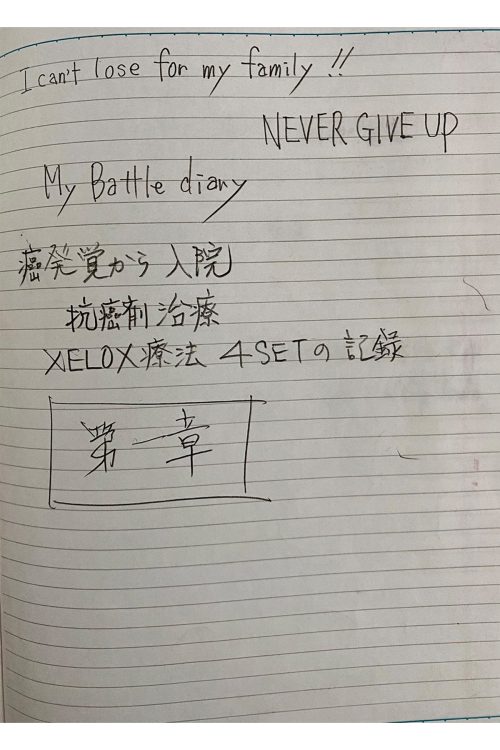 I can't lose for my family !!
NEVER GIVE UP
My Battle diary
癌発覚から入院
抗癌剤治療
XELOX療法 4SETの記録
第一章